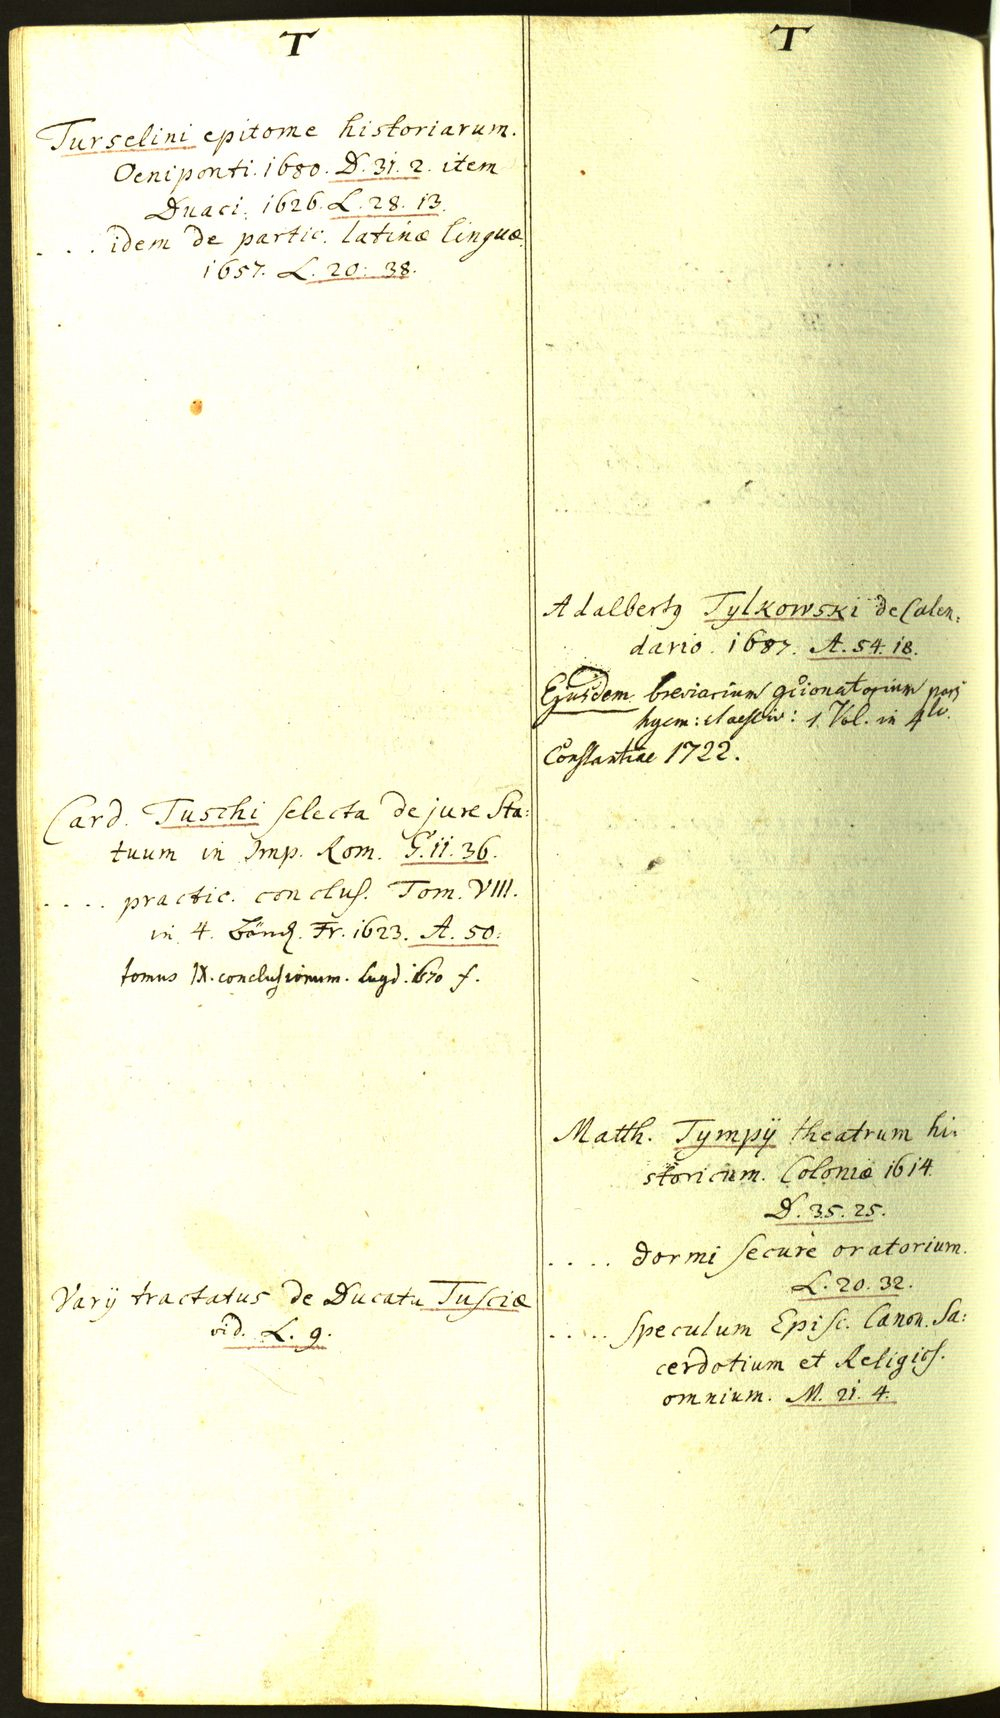 T
Turselini epitome historiarum.
Oeniponti. 1680. D. 31. 2. item
Duaci. 1626. L. 28. 13.
. . . idem de partic. latinæ linguæ.
1657. L. 20. 38.
Card. Tuschi selecta de jure Sta:
tuum in Imp. Rom. G. 11. 36.
. . . . practic. conclus. Tom. VIII.
in 4. Bänd. Fr. 1623. A. 50.
tomus IX. conclusionum. Lugd. 1670 f.
Varij tractatus de Ducatu Tusciæ
vid. L. 9.
T
Adalberty Tylkowski de Calen:
dario. 1687. A. 54. 18.
Ejusdem breviarium pars
hyem: et aestiv: 1. Vol. in 4to.
Constantiae 1722.
Matth. Tympij theatrum hi:
storicum. Coloniæ 1614.
D. 35. 25.
. . . . dormi secure oratorium.
L. 20. 32.
. . . . . speculum Episc. Canon. Sa:
cerdotium et Religios.
omnium. M. 21. 4.